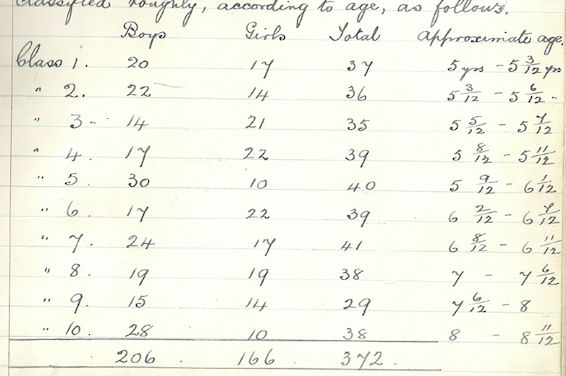 Classified roughly, according to age, as follows.
Boys Girls Total Approximate age.
Class 1. 20 17 37 5 yrs - 5 3/12 yrs
" 2. 22 14 36 5 3/12 - 5 6/12 -
" 3 - 14 21 35 5 5/12 - 5 7/12
" 4. 17 22 39 5 8/12 - 5 11/12
" 5. 30 10 40 5 9/12 - 6 1/12
" 6. 17 22 39 6 2/12 - 6 7/12
" 7. 24 17 41 6 8/12 - 6 11/12
" 8. 19 19 38 7 - 7 6/12
" 9. 15 14 29 7 6/12 - 8
" 10. 28 10 38 8 - 8 11/12
206 . 166 . 372 .